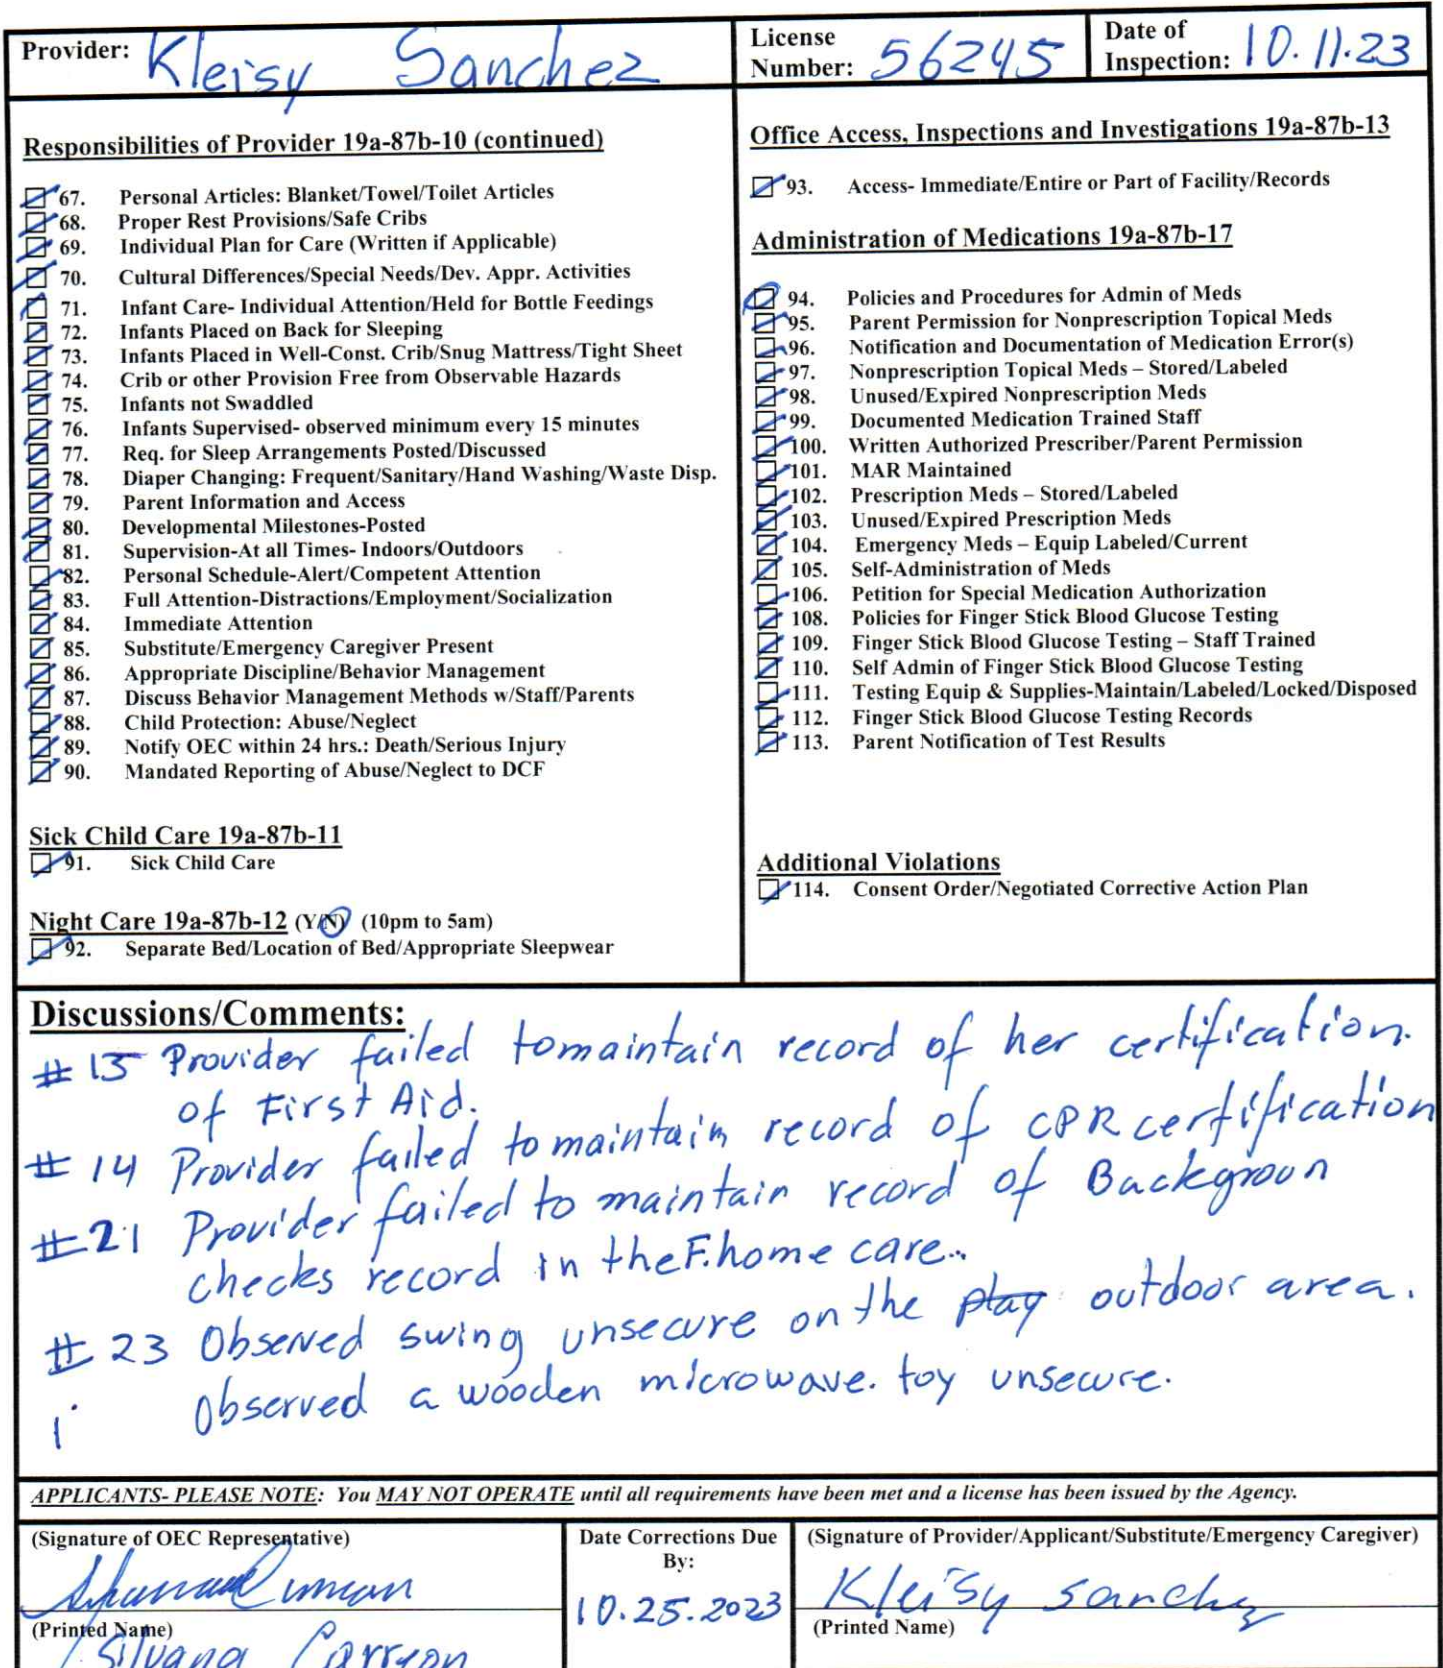 Provider: Kleisy Sanchez
License Number: 56245
Date of Inspection: 10.11.23
Responsibilities of Provider 19a-87b-10 (continued)
67. Personal Articles: Blanket/Towel/Toilet Articles
68. Proper Rest Provisions/Safe Cribs
69. Individual Plan for Care (Written if Applicable)
70. Cultural Differences/Special Needs/Dev. Appr. Activities
71. Infant Care- Individual Attention/Held for Bottle Feedings
72. Infants Placed on Back for Sleeping
73. Infants Placed in Well-Const. Crib/Snug Mattress/Tight Sheet
74. Crib or other Provision Free from Observable Hazards
75. Infants not Swaddled
76. Infants Supervised- observed minimum every 15 minutes
77. Req. for Sleep Arrangements Posted/Discussed
78. Diaper Changing: Frequent/Sanitary/Hand Washing/Waste Disp.
79. Parent Information and Access
80. Developmental Milestones-Posted
81. Supervision-At all Times- Indoors/Outdoors
82. Personal Schedule-Alert/Competent Attention
83. Full Attention-Distractions/Employment/Socialization
84. Immediate Attention
85. Substitute/Emergency Caregiver Present
86. Appropriate Discipline/Behavior Management
87. Discuss Behavior Management Methods w/Staff/Parents
88. Child Protection: Abuse/Neglect
89. Notify OEC within 24 hrs.: Death/Serious Injury
90. Mandated Reporting of Abuse/Neglect to DCF
Sick Child Care 19a-87b-11
91. Sick Child Care
Night Care 19a-87b-12 (Y/N) (10pm to 5am)
92. Separate Bed/Location of Bed/Appropriate Sleepwear
Office Access, Inspections and Investigations 19a-87b-13
93. Access- Immediate/Entire or Part of Facility/Records
Administration of Medications 19a-87b-17
94. Policies and Procedures for Admin of Meds
95. Parent Permission for Nonprescription Topical Meds
96. Notification and Documentation of Medication Error(s)
97. Nonprescription Topical Meds – Stored/Labeled
98. Unused/Expired Nonprescription Meds
99. Documented Medication Trained Staff
100. Written Authorized Prescriber/Parent Permission
101. MAR Maintained
102. Prescription Meds – Stored/Labeled
103. Unused/Expired Prescription Meds
104. Emergency Meds – Equip Labeled/Current
105. Self-Administration of Meds
106. Petition for Special Medication Authorization
108. Policies for Finger Stick Blood Glucose Testing
109. Finger Stick Blood Glucose Testing – Staff Trained
110. Self Admin of Finger Stick Blood Glucose Testing
111. Testing Equip & Supplies-Maintain/Labeled/Locked/Disposed
112. Finger Stick Blood Glucose Testing Records
113. Parent Notification of Test Results
Additional Violations
114. Consent Order/Negotiated Corrective Action Plan
Discussions/Comments:
# 15 Provider failed to maintain record of her certification.
of First Aid.
# 14 Provider failed to maintain record of CPR certification
#21 Provider failed to maintain record of Backgroun
checks record in the F.home care..
# 23 Observed swing unsecure on the play outdoor area.
Observed a wooden microwave. toy unsecure.
APPLICANTS- PLEASE NOTE: You MAY NOT OPERATE until all requirements have been met and a license has been issued by the Agency.
(Signature of OEC Representative)
(Printed Name)
Silvana Carreon
Date Corrections Due
By:
10.25.2023
(Signature of Provider/Applicant/Substitute/Emergency Caregiver)
Kleisy Sanchez
(Printed Name)